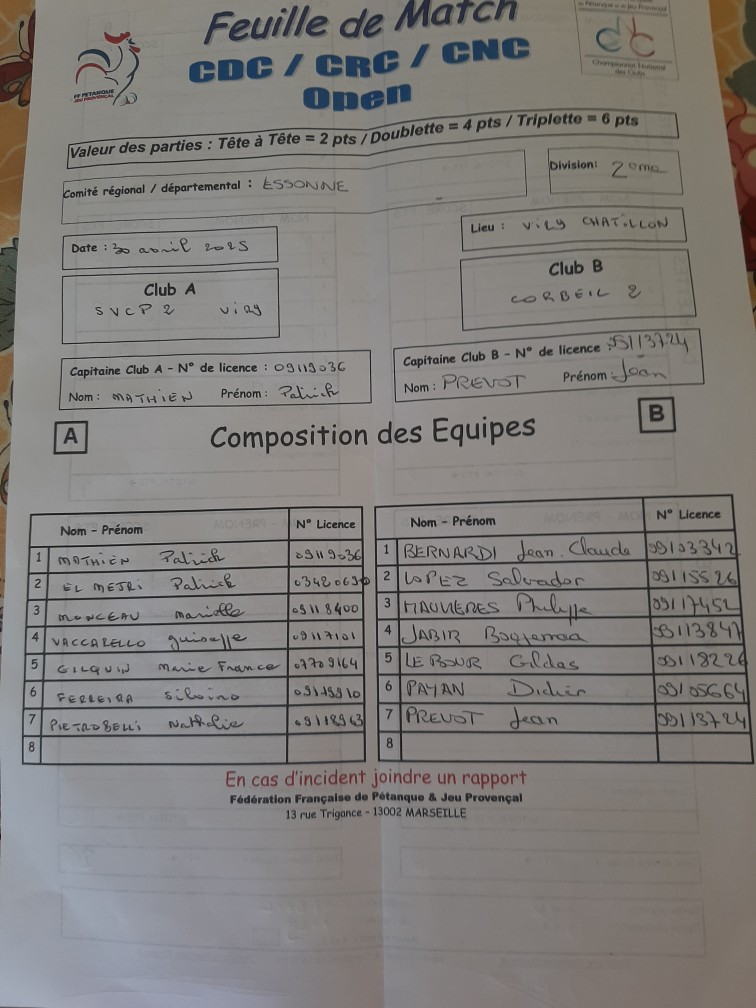 Feuille de Match
CDC / CRC / CNC
Open
FF PETANQUE
JEU PROVENÇAL
Championnat National
des Clubs
Valeur des parties : Tête à Tête = 2 pts / Doublette = 4 pts / Triplette = 6 pts
Comité régional / départemental : ESSONNE
Division: 2eme
Date : 30 avril 2025
Lieu : VIRY CHATILLON
Club A
SVCP 2 VIRY
Club B
CORBEIL 2
Capitaine Club A - N° de licence : 09119036
Nom : MATHIEN Prénom : Patrick
Capitaine Club B - N° de licence : 9113724
Nom : PREVOT Prénom : Jean
A Composition des Equipes B
Nom - Prénom N° Licence
1 MATHIEN Patrick 09119036
2 EL METRI Patrick 0342063
3 MONCEAU Marielle 09118400
4 VACCARELLO guiseppe 09117101
5 GILQUIN Marie France 07709164
6 FERREIRA Silvino 09119910
7 PIETROBELLI Nathalie 09118963
8
Nom - Prénom N° Licence
1 BERNARDI Jean.Claude 09103342
2 LOPEZ Salvador 09115526
3 Philippe 09117452
4 JABIR 09113847
5 LE BOUR Gildas 09118226
6 PAYAN Didier 09105664
7 PREVOT Jean 09113724
8
En cas d'incident joindre un rapport
Fédération Française de Pétanque & Jeu Provençal
13 rue Trigance - 13002 MARSEILLE